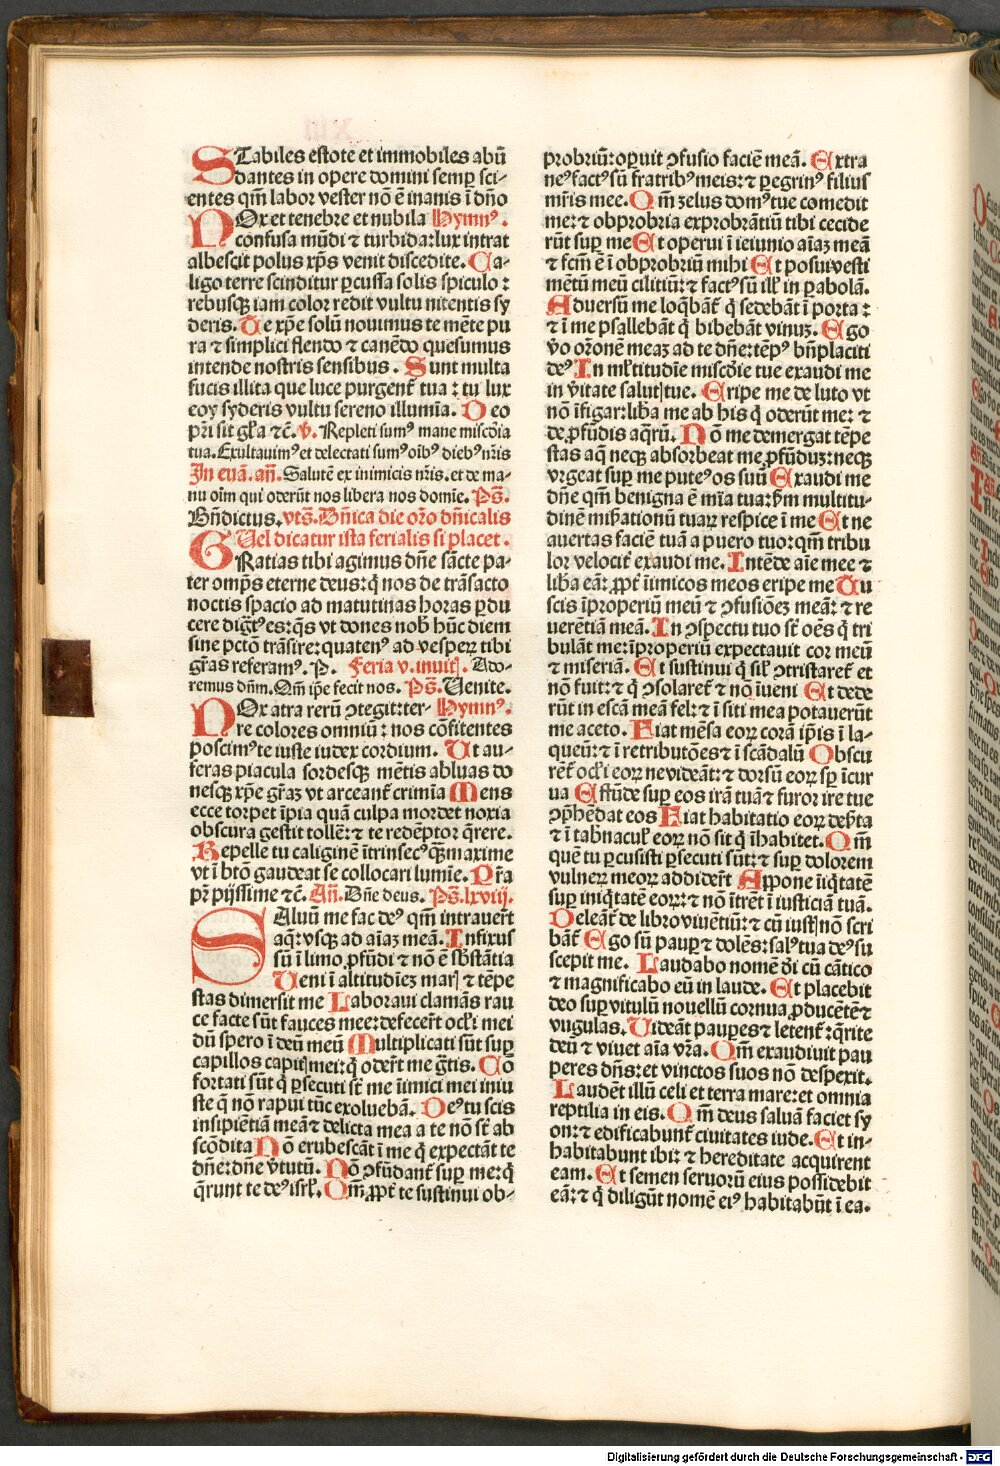 STabiles estote et immobiles abū
dantes in opere domini semꝑ sci-
entes qm̄ labor vester nō ē inanis ī dn̄o
NOx et tenebre et nubila Hymnꝰ.
confusa mūdi ⁊ turbida: lux intrat
albescit polus xp̄s venit discedite. Ca-
ligo terre scinditur ꝑcussa solis spiculo:
rebusqꝫ iam color redit vultu nitentis sy
deris. Te xp̄e solū nouimus te mēte pu
ra ⁊ simplici flendo ⁊ canēdo quesumus
intende nostris sensibus. Sunt multa
fucis illita que luce purgent̄ tua: tu lux
eoy syderis vultu sereno illumīa. Deo
pr̄i sit gl̄a ⁊c̄. v̄. Repleti sumꝰ mane miscd̄ia
tua. Exultauimꝰ et delectati sumꝰ oīb̕ dieb̕ nr̄is
In euā. an̄. Salutē ex inimicis nr̄is. et de ma-
nu oīm qui oderūt nos libera nos domīe. Ps̄.
Bn̄dictus. vts̄. Dn̄ica die or̄o dn̄icalis
Uel dicatur ista ferialis si placet.
GRatias tibi agimus dn̄e sācte pa-
ter omp̄s eterne deus: q̄ nos de trāsacto
noctis spacio ad matutinas horas ꝑdu
cere digt̄ꝰ es: q̄s vt dones nob̄ hūc diem
sine pctō trāsire: quatenꝰ ad vesperꝫ tibi
gr̄as referamꝰ. P. Feria v. inuit̄. Ado-
remus dn̄m. Qm̄ ip̄e fecit nos. Ps̄. Uenite.
NOx atra rerū ↄtegit: ter- Hymnꝰ.
re colores omniū: nos cōfitentes
poscimꝰ te iuste iudex cordium. Ut au-
feras piacula sordesqꝫ mētis abluas do
nesqꝫ xp̄e gr̄aꝫ vt arceant̄ crimīa Mens
ecce torpet īpia quā culpa mordet noxia
obscura gestit tolle̅: ⁊ te redēptor q̄rere.
Repelle tu caliginē ītrinsecꝰ q̄ꝫ maxime
vt ī btō gaudeat se collocari lumīe. Pr̄a
pr̄ pijssime ⁊c̄. An̄. Dn̄e deus. Ps̄. lxviij.
SAluū me fac deꝰ qm̄ intrauert̄
aq̄: vsqꝫ ad aīaꝫ meā. Infixus
sū ī limo ꝓfūdi ⁊ nō ē sb̄stātia
Ueni ī altitudīeꝫ mar̄ ⁊ tēpe
stas dimersit me Laboraui clamās rau
ce facte sūt fauces mee: defecer̄t ocl̄i mei
dū spero ī deū meū Multiplicati sūt suꝑ
capillos capit̄ mei: q̄ oder̄t me gt̄is. Cō
fortati sūt q̄ ꝑsecuti st̄ me īimici mei iniu
ste q̄ nō rapui tūc exoluebā. Deꝰ tu scis
insipiētiā meā ⁊ delicta mea a te nō st̄ ab
scōdita Nō erubescāt ī me q̄ expectāt te
dn̄e: dn̄e v̄tutū. Nō ↄfūdant̄ suꝑ me: q̄
q̄runt te deꝰ isrl̄. Qm̄ ꝓpt̄ te sustinui ob-
probriū: opuit ↄfusio faciē meā. Extra
neꝰ factꝰ sū fratribꝰ meis: ⁊ ꝑegrinꝰ filius
mr̄is mee. Qm̄ zelus domꝰ tue comedit
me: ⁊ obprobria exprobrātiū tibi cecide
rūt suꝑ me Et operui ī ieiunio aīaꝫ meā
⁊ fcm̄ ē ī obprobriū mihi Et posui vesti
mētū meū ciliciū: ⁊ factꝰ sū ill̄ in ꝑabolā.
Aduersū me loq̄bāt̄ q̄ sedebāt ī porta:
⁊ ī me psallebāt q̄ bibebāt vinuꝫ. Ego
v̄o or̄onē meaꝫ ad te dn̄e: tēpꝰ bn̄placiti
deꝰ In ml̄titudīe miscd̄ie tue exaudi me
in v̄itate salut̄ tue. Eripe me de luto vt
nō īfigar: lib̄a me ab his q̄ oderūt me: ⁊
de ꝓfūdis aq̄rū. Nō me demergat tēpe
stas aq̄ neqꝫ absorbeat me ꝓfūduꝫ: neqꝫ
vrgeat suꝑ me puteꝰ os suū Exaudi me
dn̄e qm̄ benigna ē mīa tua: ẜm multitu-
dinē miẜationū tuaꝝ respice ī me Et ne
auertas faciē tuā a puero tuo: qm̄ tribu
lor velocit̄ exaudi me. Intēde aīe mee ⁊
lib̄a eā: ꝓpt̄ īimicos meos eripe me Tu
scis īproperiū meū ⁊ ↄfusiōeꝫ meā: ⁊ re
uerētiā meā. In ↄspectu tuo st̄ oēs q̄ tri
bulāt me: īproperiū expectauit cor meū
⁊ miseriā. Et sustinui q̄ sil̄ ↄtristaret̄ et
nō fuit: ⁊ q̄ ↄsolaret̄ ⁊ nō īueni Et dede
rūt in escā meā fel: ⁊ ī siti mea potauerūt
me aceto. Fiat mēsa eoꝝ corā ip̄is ī la-
queū: ⁊ ī retributōes ⁊ ī scādalū Obscu
rēt̄ ocl̄i eoꝝ ne videāt: ⁊ dorsū eoꝝ sꝑ īcur
ua Effūde suꝑ eos irā tuā ⁊ furor ire tue
ↄp̄hēdat eos Fiat habitatio eoꝝ deẜta
⁊ ī tabnacul̄ eoꝝ nō sit q̄ īhabitet. Qm̄
quē tu ꝑcusisti ꝑsecuti sūt: ⁊ suꝑ dolorem
vulneꝝ meoꝝ addider̄t Appone īiq̄tatē
suꝑ iniq̄tatē eoꝝ: ⁊ nō ītrēt ī iusticiā tuā.
Deleāt̄ de libro viuētiū: ⁊ cū iust̄ nō scri
bāt̄ Ego sū pauꝑ ⁊ dolēs: salꝰ tua deꝰ su
scepit me. Laudabo nomē di̅ cū cātico
⁊ magnificabo eū in laude. Et placebit
deo suꝑ vitulū nouellū cornua ꝓducētē ⁊
vngulas. Uideāt pauꝑes ⁊ letent̄: q̄rite
deū ⁊ viuet aīa vr̄a. Qm̄ exaudiuit pau
peres dn̄s: et vinctos suos nō despexit.
Laudēt illū celi et terra mare: et omnia
reptilia in eis. Qm̄ deus saluā faciet sy
on: ⁊ edificabunt̄ ciuitates iude. Et in-
habitabunt ibi: ⁊ hereditate acquirent
eam. Et semen seruorū eius possidebit
eā: ⁊ q̄ diligūt nomē eiꝰ habitabūt ī ea.
Digitalisierung gefördert durch die Deutsche Forschungsgemeinschaft - DFG